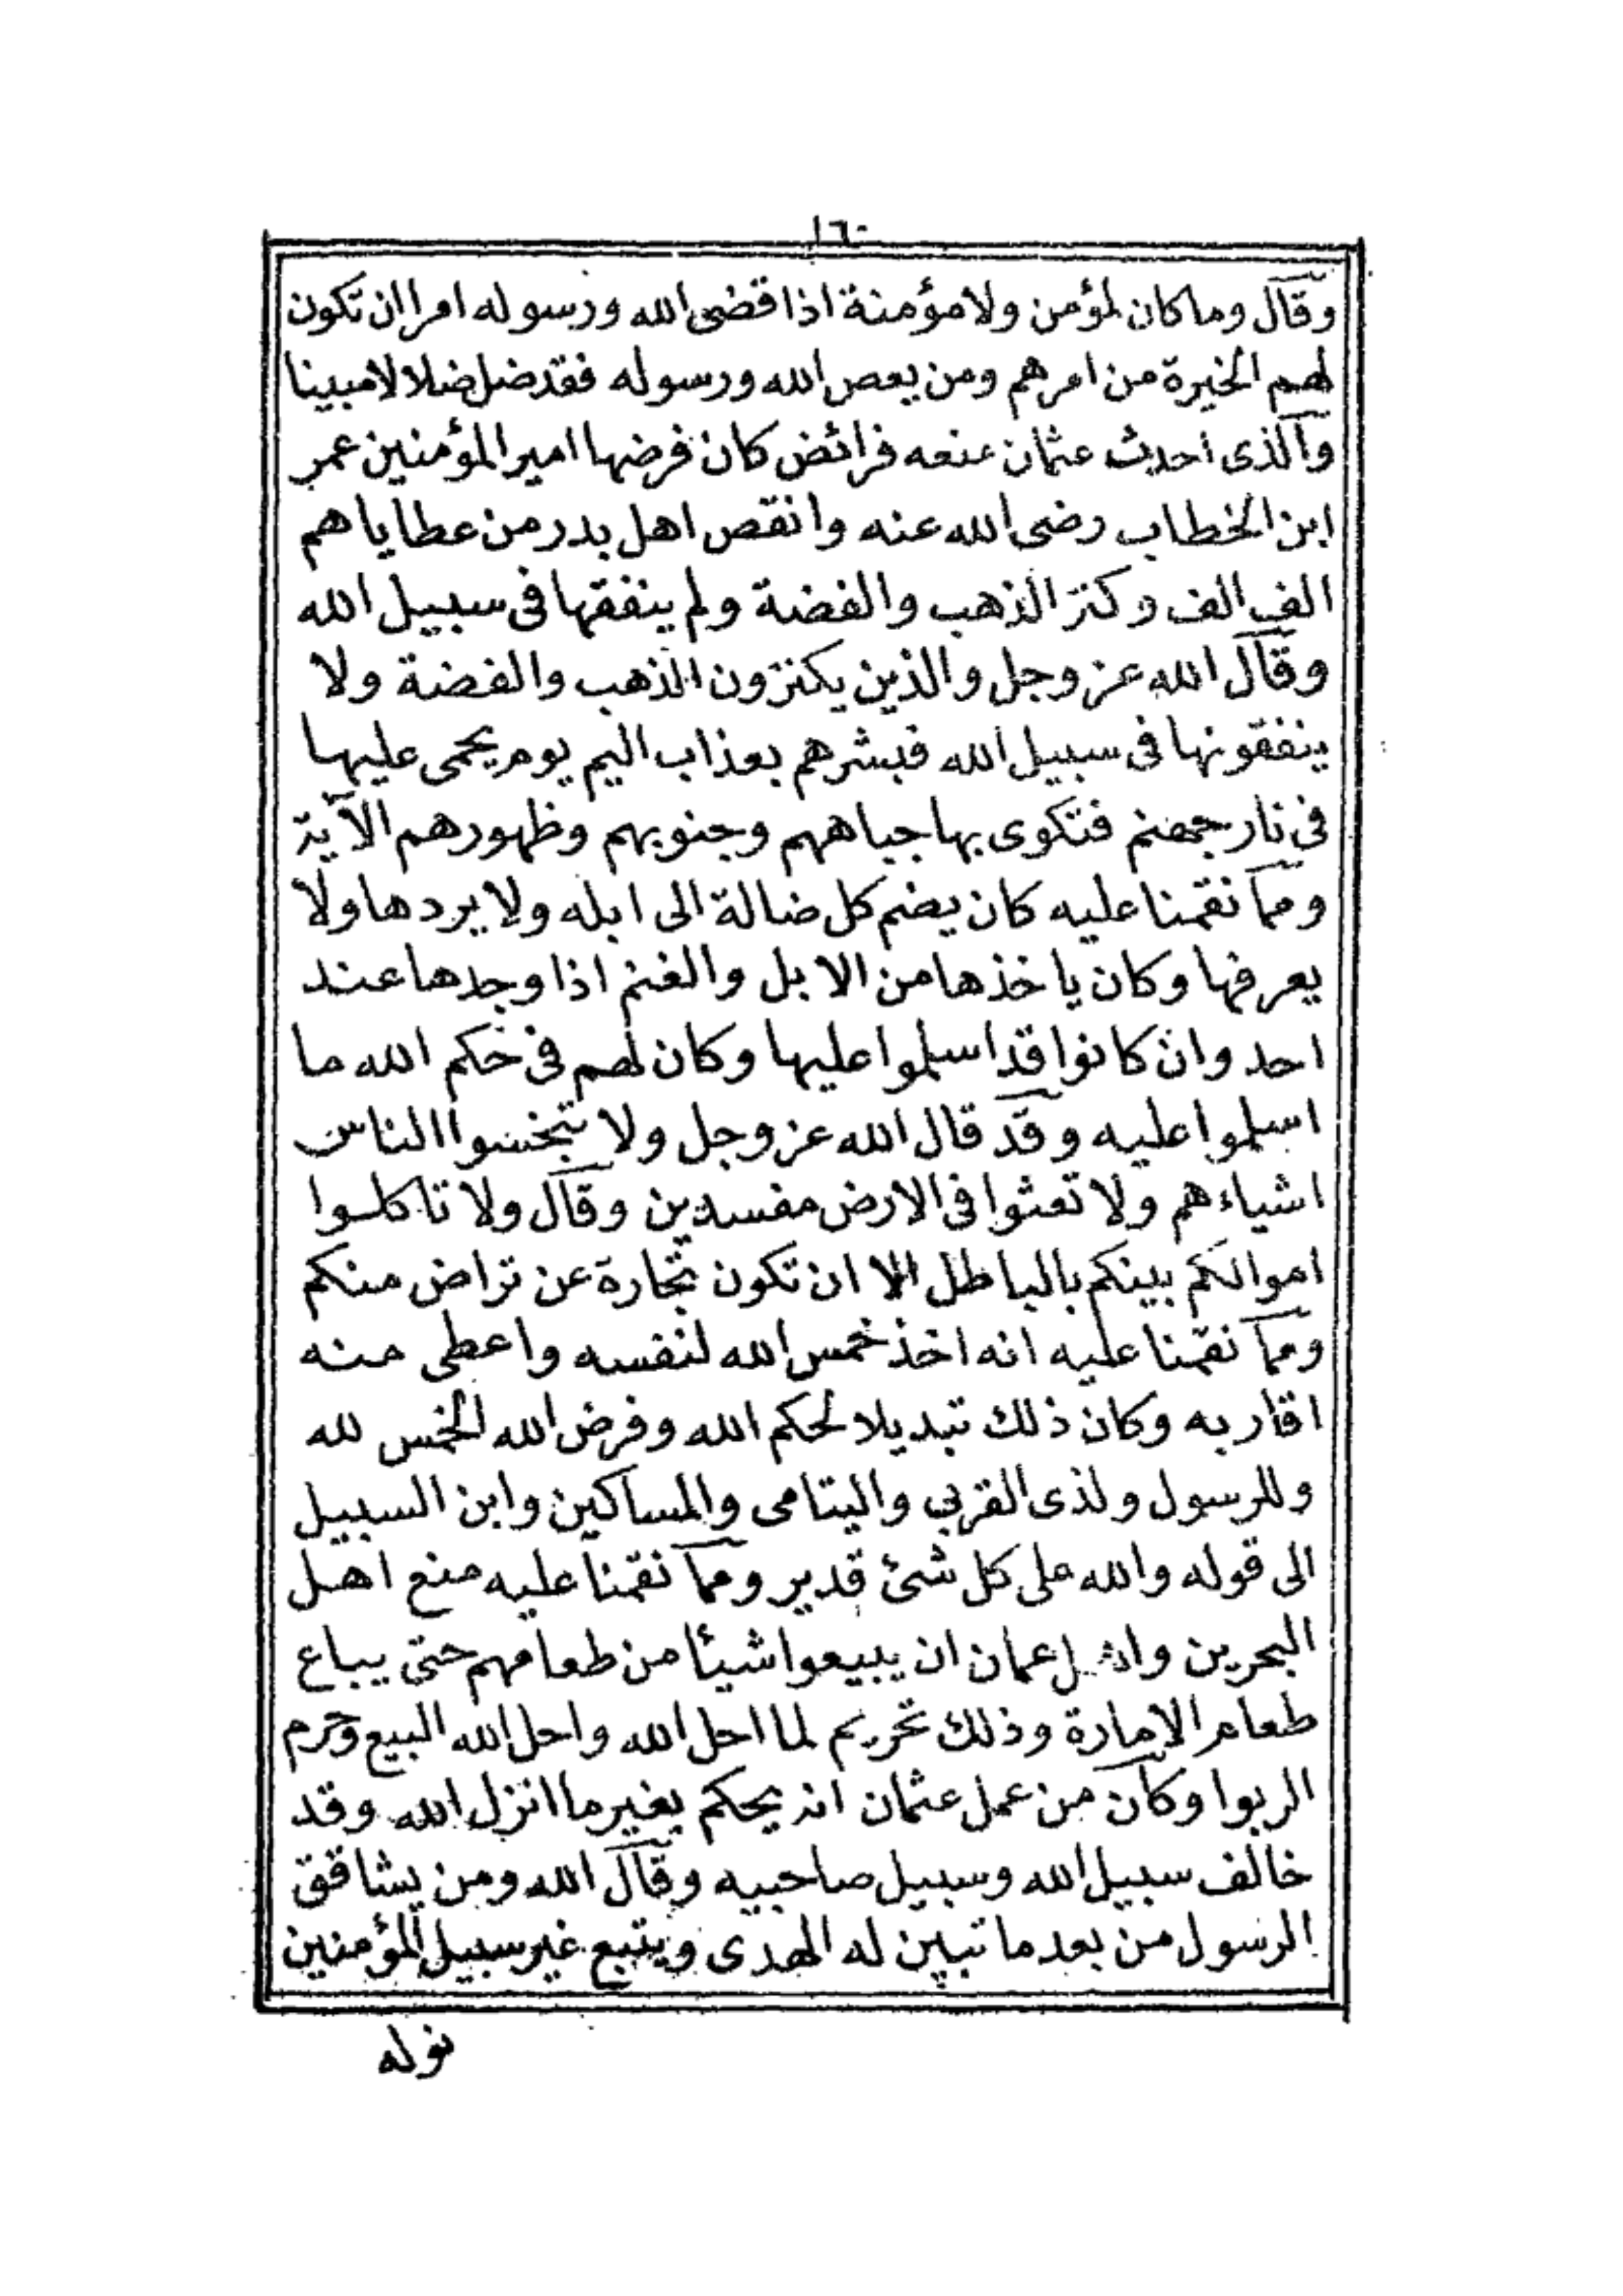 ١٦٠
وقال وما كان لمؤمن ولا مؤمنة اذا قضى الله ورسوله امرا ان تكون
لهم الخيرة من امرهم ومن يعص الله ورسوله فقد ضل ضلالا مبينا
والذى احدث عثمان منعه فرائض كان فرضها امير المؤمنين عمر
ابن الخطاب رضى الله عنه وانقص اهل بدر من عطاياهم
الف الف وكنز الذهب والفضة ولم ينفقها فى سبيل الله
وقال الله عز وجل والذين يكنزون الذهب والفضة ولا
ينفقونها فى سبيل الله فبشرهم بعذاب اليم يوم يحمى عليها
فى نار جهنم فتكوى بها جباههم وجنوبهم وظهورهم الآية
ومما نقمنا عليه كان يضم كل ضالة الى ابله ولا يردها ولا
يعرفها وكان ياخذها من الابل والغنم اذا وجدها عند
احد وان كانوا قد اسلموا عليها وكان لهم فى حكم الله ما
اسلموا عليه وقد قال الله عز وجل ولا تبخسوا الناس
اشياءهم ولا تعثوا فى الارض مفسدين وقال ولا تاكلوا
اموالكم بينكم بالباطل الا ان تكون تجارة عن تراض منكم
ومما نقمنا عليه انه اخذ خمس الله لنفسه واعطى منه
اقاربه وكان ذلك تبديلا لحكم الله وفرض الله الخمس لله
وللرسول ولذى القربى واليتامى والمساكين وابن السبيل
الى قوله والله على كل شئ قدير ومما نقمنا عليه منع اهل
البحرين واهل عمان ان يبيعوا شيئا من طعامهم حتى يباع
طعام الامارة وذلك تحريم لما احل الله واحل الله البيع وحرم
الربوا وكان من عمل عثمان انه يحكم بغير ما انزل الله وقد
خالف سبيل الله وسبيل صاحبيه وقال الله ومن يشاقق
الرسول من بعد ما تبين له الهدى ويتبع غير سبيل المؤمنين
نوله